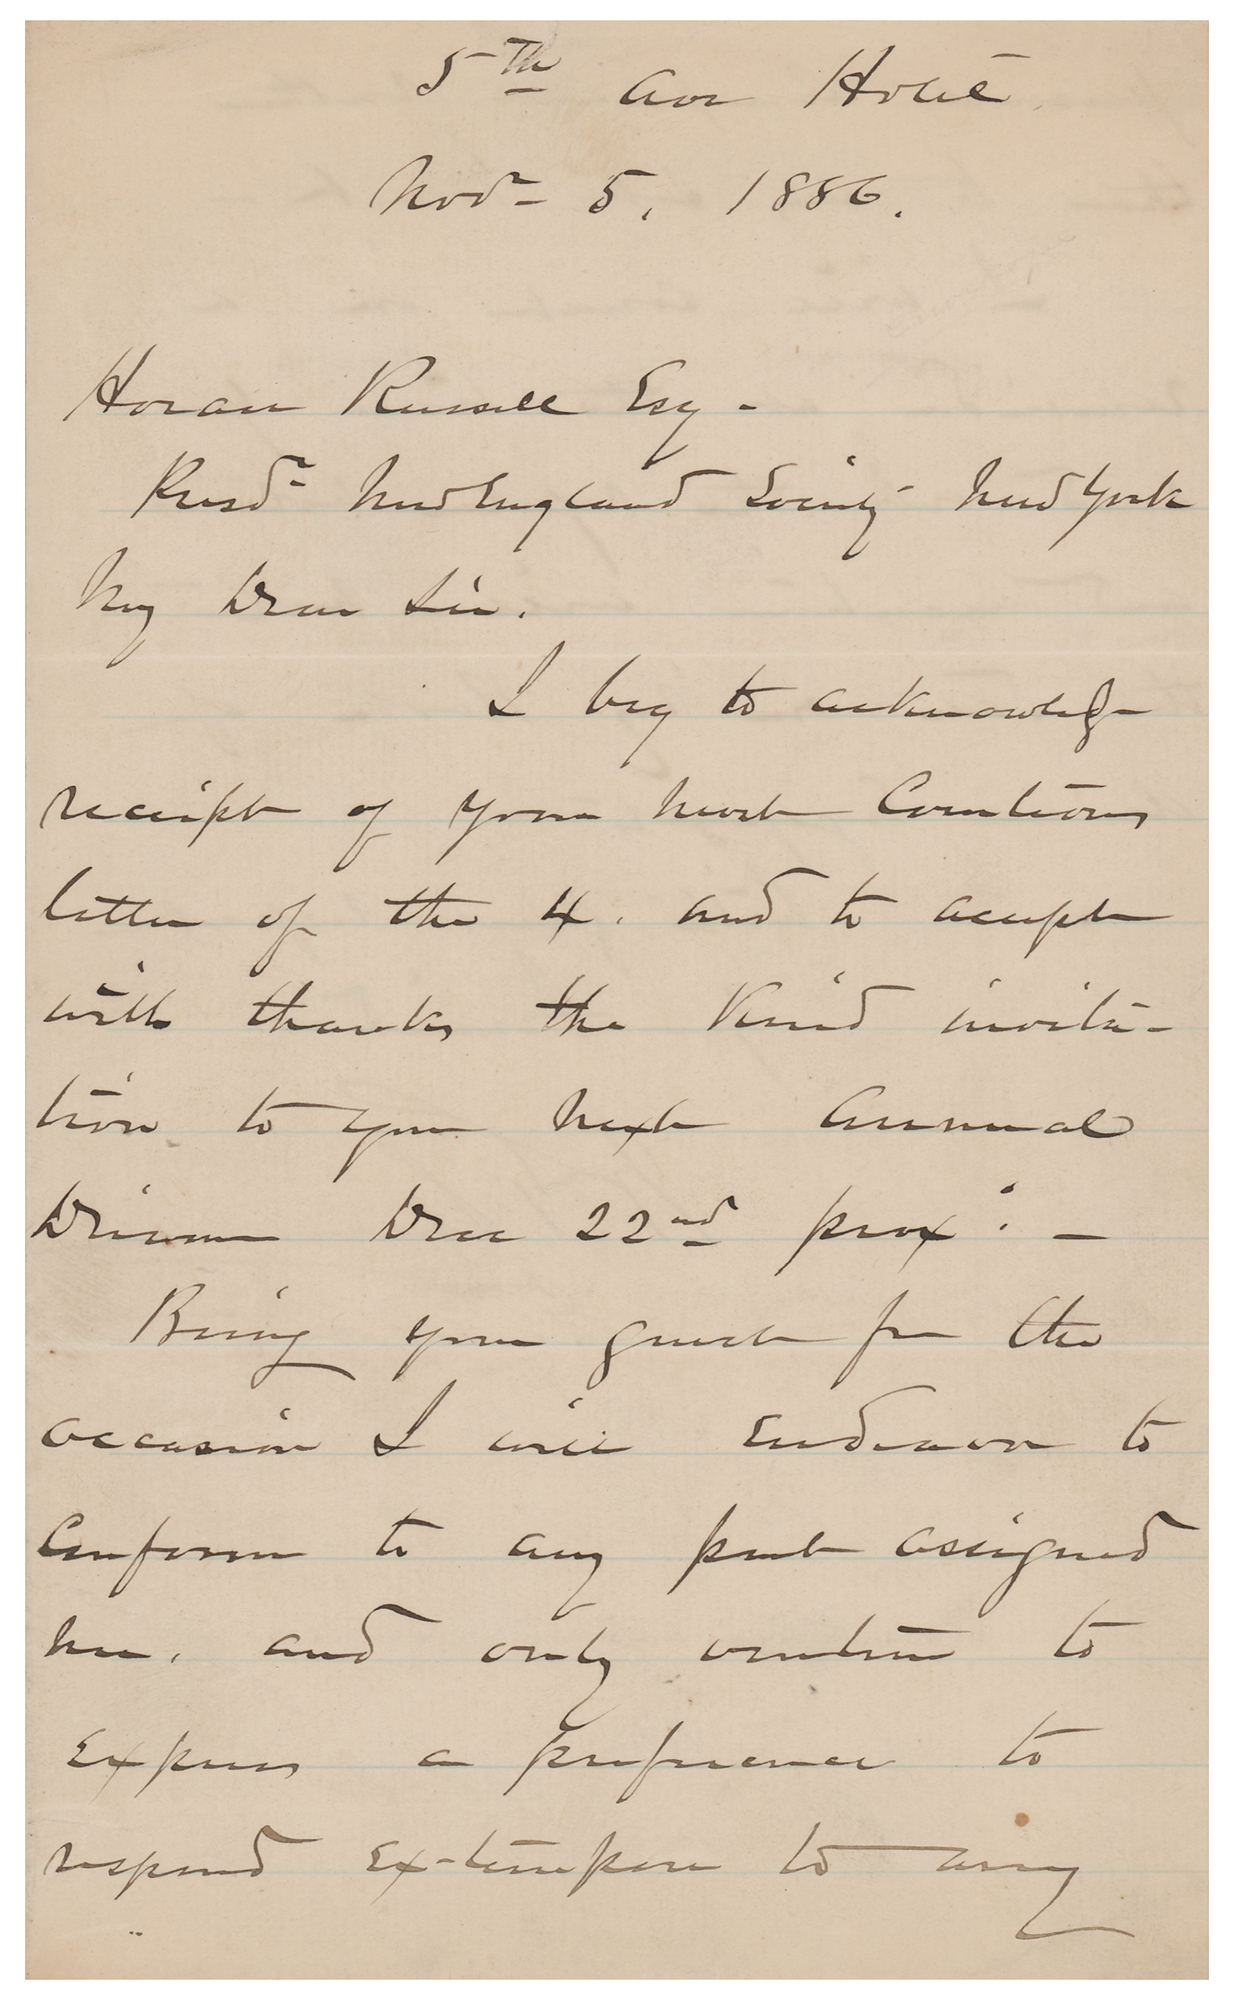 5th Ave Hotel
Novr 5, 1886.
Horace Russell Esq -
Presdt New England Society New York
My Dear Sir.
I beg to acknowledge
receipt of your most Courteous
letter of the 4. and to accept
with thanks the Kind invita-
tion to your next Annual
Dinner Dec 22nd prox: -
Being your guest for the
occasion I will Endeavor to
Conform to any part assigned
me, and only venture to
Express a preference to
respond Ex-tempore to any